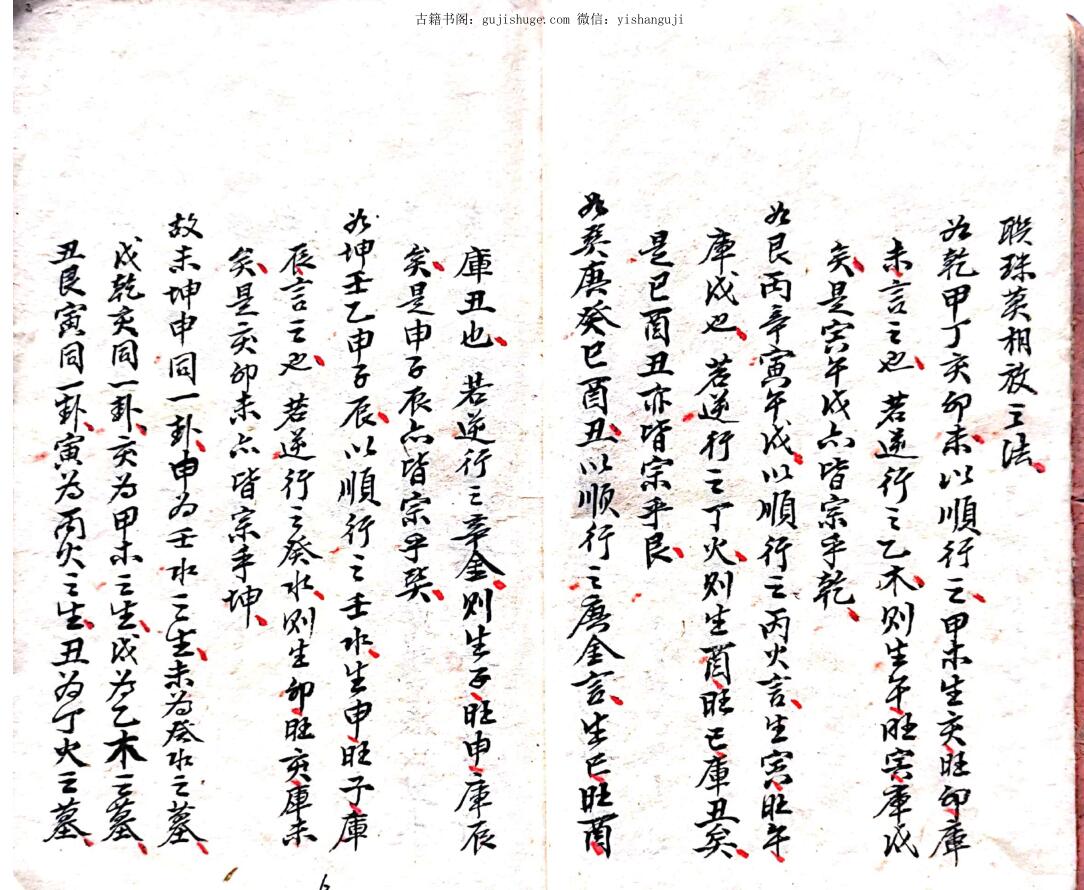 古籍书阁：gujishuge.com 微信：yishanguji
联珠英相放三法
如乾甲丁亥卯未以順行言之甲木生亥旺卯庫
未言之也若逆行之乙木则生午旺寅庫戌
矣是寅午戌亦皆宗乎乾
如艮丙辛寅午戌以順行之丙火言生寅旺午
庫戌也若逆行之丁火则生酉旺巳庫丑矣
是巳酉丑亦皆宗乎艮
如巽庚癸巳酉丑以顺行之庚金言生巳旺酉
庫丑也若逆行之辛金则生子旺申庫辰
矣是申子辰亦皆宗乎巽
如坤壬乙申子辰以順行之壬水生申旺子庫
辰言之也若逆行之癸水则生卯旺亥庫未
矣是亥卯未亦皆宗乎坤
故未坤申同一卦申为壬水之生未为癸水之墓
戌乾亥同一卦亥为甲木之生戌为乙木之墓
丑艮寅同一卦寅为丙火之生丑为丁火之墓